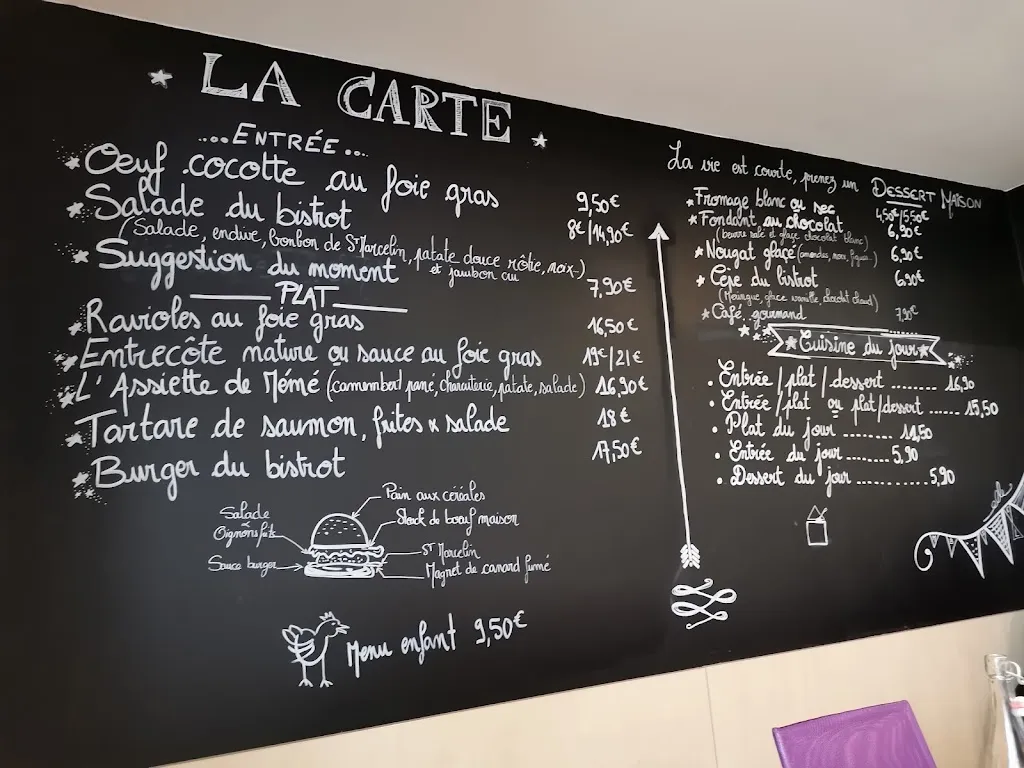 LA CARTE
....ENTRÉE...
Oeuf cocotte au foie gras 9,50€
Salade du bistrot 8€/14,90€
(Salade, endive, bonbon de St Marcelin, patate douce rôtie, noix..)
et jambon cru
Suggestion du moment 7,90€
PLAT
Ravioles au foie gras 16,50€
Entrecôte nature ou sauce au foie gras 19€/21€
L'Assiette de Mémé (camembert pané, charcuterie, patate, salade) 16,90€
Tartare de saumon, frites & salade 18€
Burger du bistrot 17,50€
Pain aux céréales
Salade
&
Oignons frits
Steak de bœuf maison
Sauce burger
St Marcelin
Magret de canard fumé
Menu enfant 9,50€
La vie est courte, prenez un DESSERT MAISON
Fromage blanc ou sec 4,50€/5,50€
Fondant au chocolat 6,90€
(beurre salé et glace chocolat blanc)
Nougat glacé (amandes, noix, figues..) 6,90€
Cepe du bistrot 6,90€
(Meringue, glace vanille, chocolat chaud)
Café gourmand 7,90€
Cuisine du jour
Entrée/plat/dessert ........ 16,90
Entrée/plat ou plat/dessert ...... 15,50
Plat du jour ......... 11,50
Entrée du jour ........ 5,90
Dessert du jour ............ 5,90